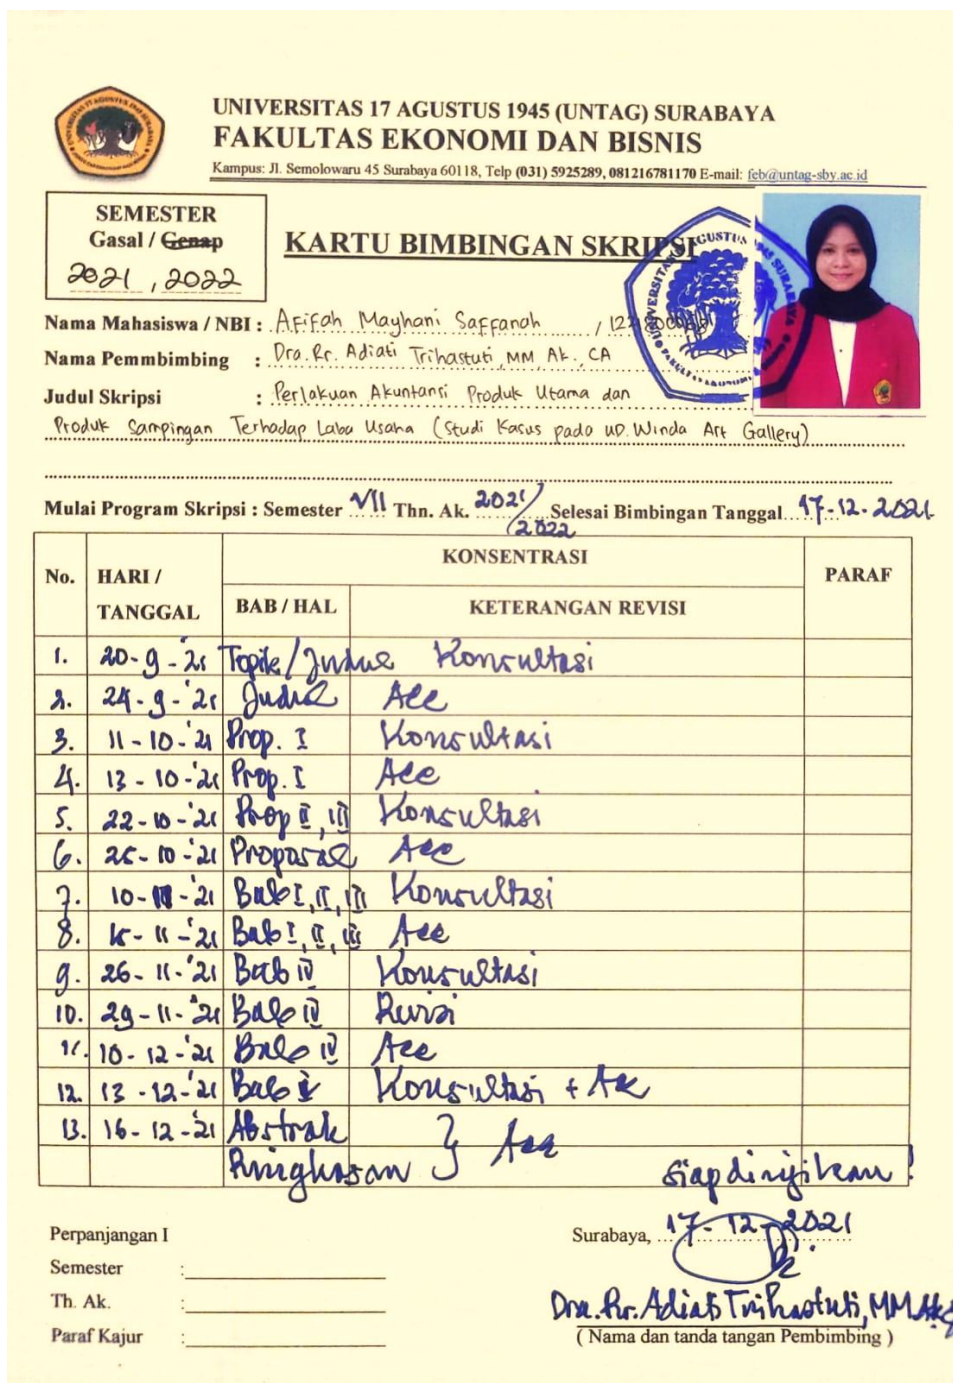 UNIVERSITAS 17 AGUSTUS 1945 (UNTAG) SURABAYA
FAKULTAS EKONOMI DAN BISNIS
Kampus: Jl. Semolowaru 45 Surabaya 60118, Telp (031) 5925289, 081216781170 E-mail: feb@untag-sby.ac.id
SEMESTER
Gasal / Genap
2021 , 2022
KARTU BIMBINGAN SKRIPSI
Nama Mahasiswa / NBI : Afifah Mayhani Saffanah /
Nama Pemmbimbing : Dra. Rr. Adiati Trihastuti, MM Ak. CA
Judul Skripsi : Perlakuan Akuntansi Produk Utama dan
Produk Sampingan Terhadap Laba Usaha (Studi Kasus pada UD. Winda Art Gallery)
Mulai Program Skripsi : Semester VII Thn. Ak. 2021/2022 Selesai Bimbingan Tanggal 17-12-2021
No. HARI / TANGGAL KONSENTRASI PARAF
BAB / HAL KETERANGAN REVISI
1. 20-9-'21 Topik/Judul Konsultasi
2. 24-9-'21 Judul Acc
3. 11-10-'21 Prop. I Konsultasi
4. 13-10-'21 Prop. I Acc
5. 22-10-'21 Prop II, III Konsultasi
6. 25-10-'21 Proposal Acc
7. 10-11-'21 Bab I, II, III Konsultasi
8. 15-11-'21 Bab I, II, III Acc
9. 26-11-'21 Bab IV Konsultasi
10. 29-11-'21 Bab IV Revisi
11. 10-12-'21 Bab IV Acc
12. 13-12-'21 Bab V Konsultasi + Acc
13. 16-12-'21 Abstrak } Acc
Ringkasan
Siap diujikan!
Perpanjangan I
Surabaya, 17-12-2021
Semester :
Th. Ak. :
Dra. Rr. Adiati Trihastuti, MM. Ak.
Paraf Kajur :
( Nama dan tanda tangan Pembimbing )